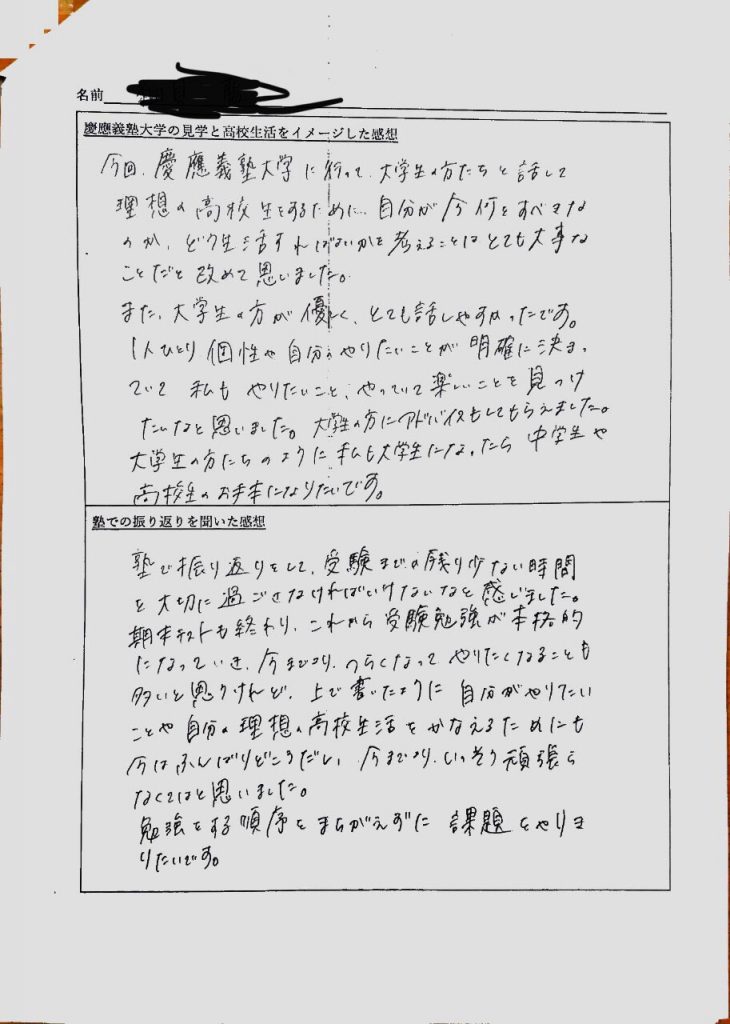 名前
慶應義塾大学の見学と高校生活をイメージした感想
今回、慶應義塾大学に行って、大学生の方たちと話して
理想の高校生をするために、自分が今何をすべきな
のか、どう生活すればよいかを考えることはとても大事な
ことだと改めて思いました。
また、大学生の方が優しく、とても話しやすかったです。
1人ひとり個性や自分のやりたいことが明確に決まっ
ていて私もやりたいこと、やっていて楽しいことを見つけ
たいなと思いました。大学生の方にアドバイスもしてもらえました。
大学生の方たちのように私も大学生になったら中学生や
高校生のお手本になりたいです。
塾での振り返りを聞いた感想
塾で振り返りをして、受験までの残り少ない時間
を大切に過ごさなければいけないなと感じました。
期末テストも終わり、これから受験勉強が本格的
になっていき、今までより、つらくなってやりたくなることも
多いと思うけれど、上で書いたように自分がやりたい
ことや自分の理想の高校生活をかなえるためにも
今はふんばりどころだし、今までより、いっそう頑張ら
なくてはと思いました。
勉強をする順序をまちがえずに課題をやりき
りたいです。